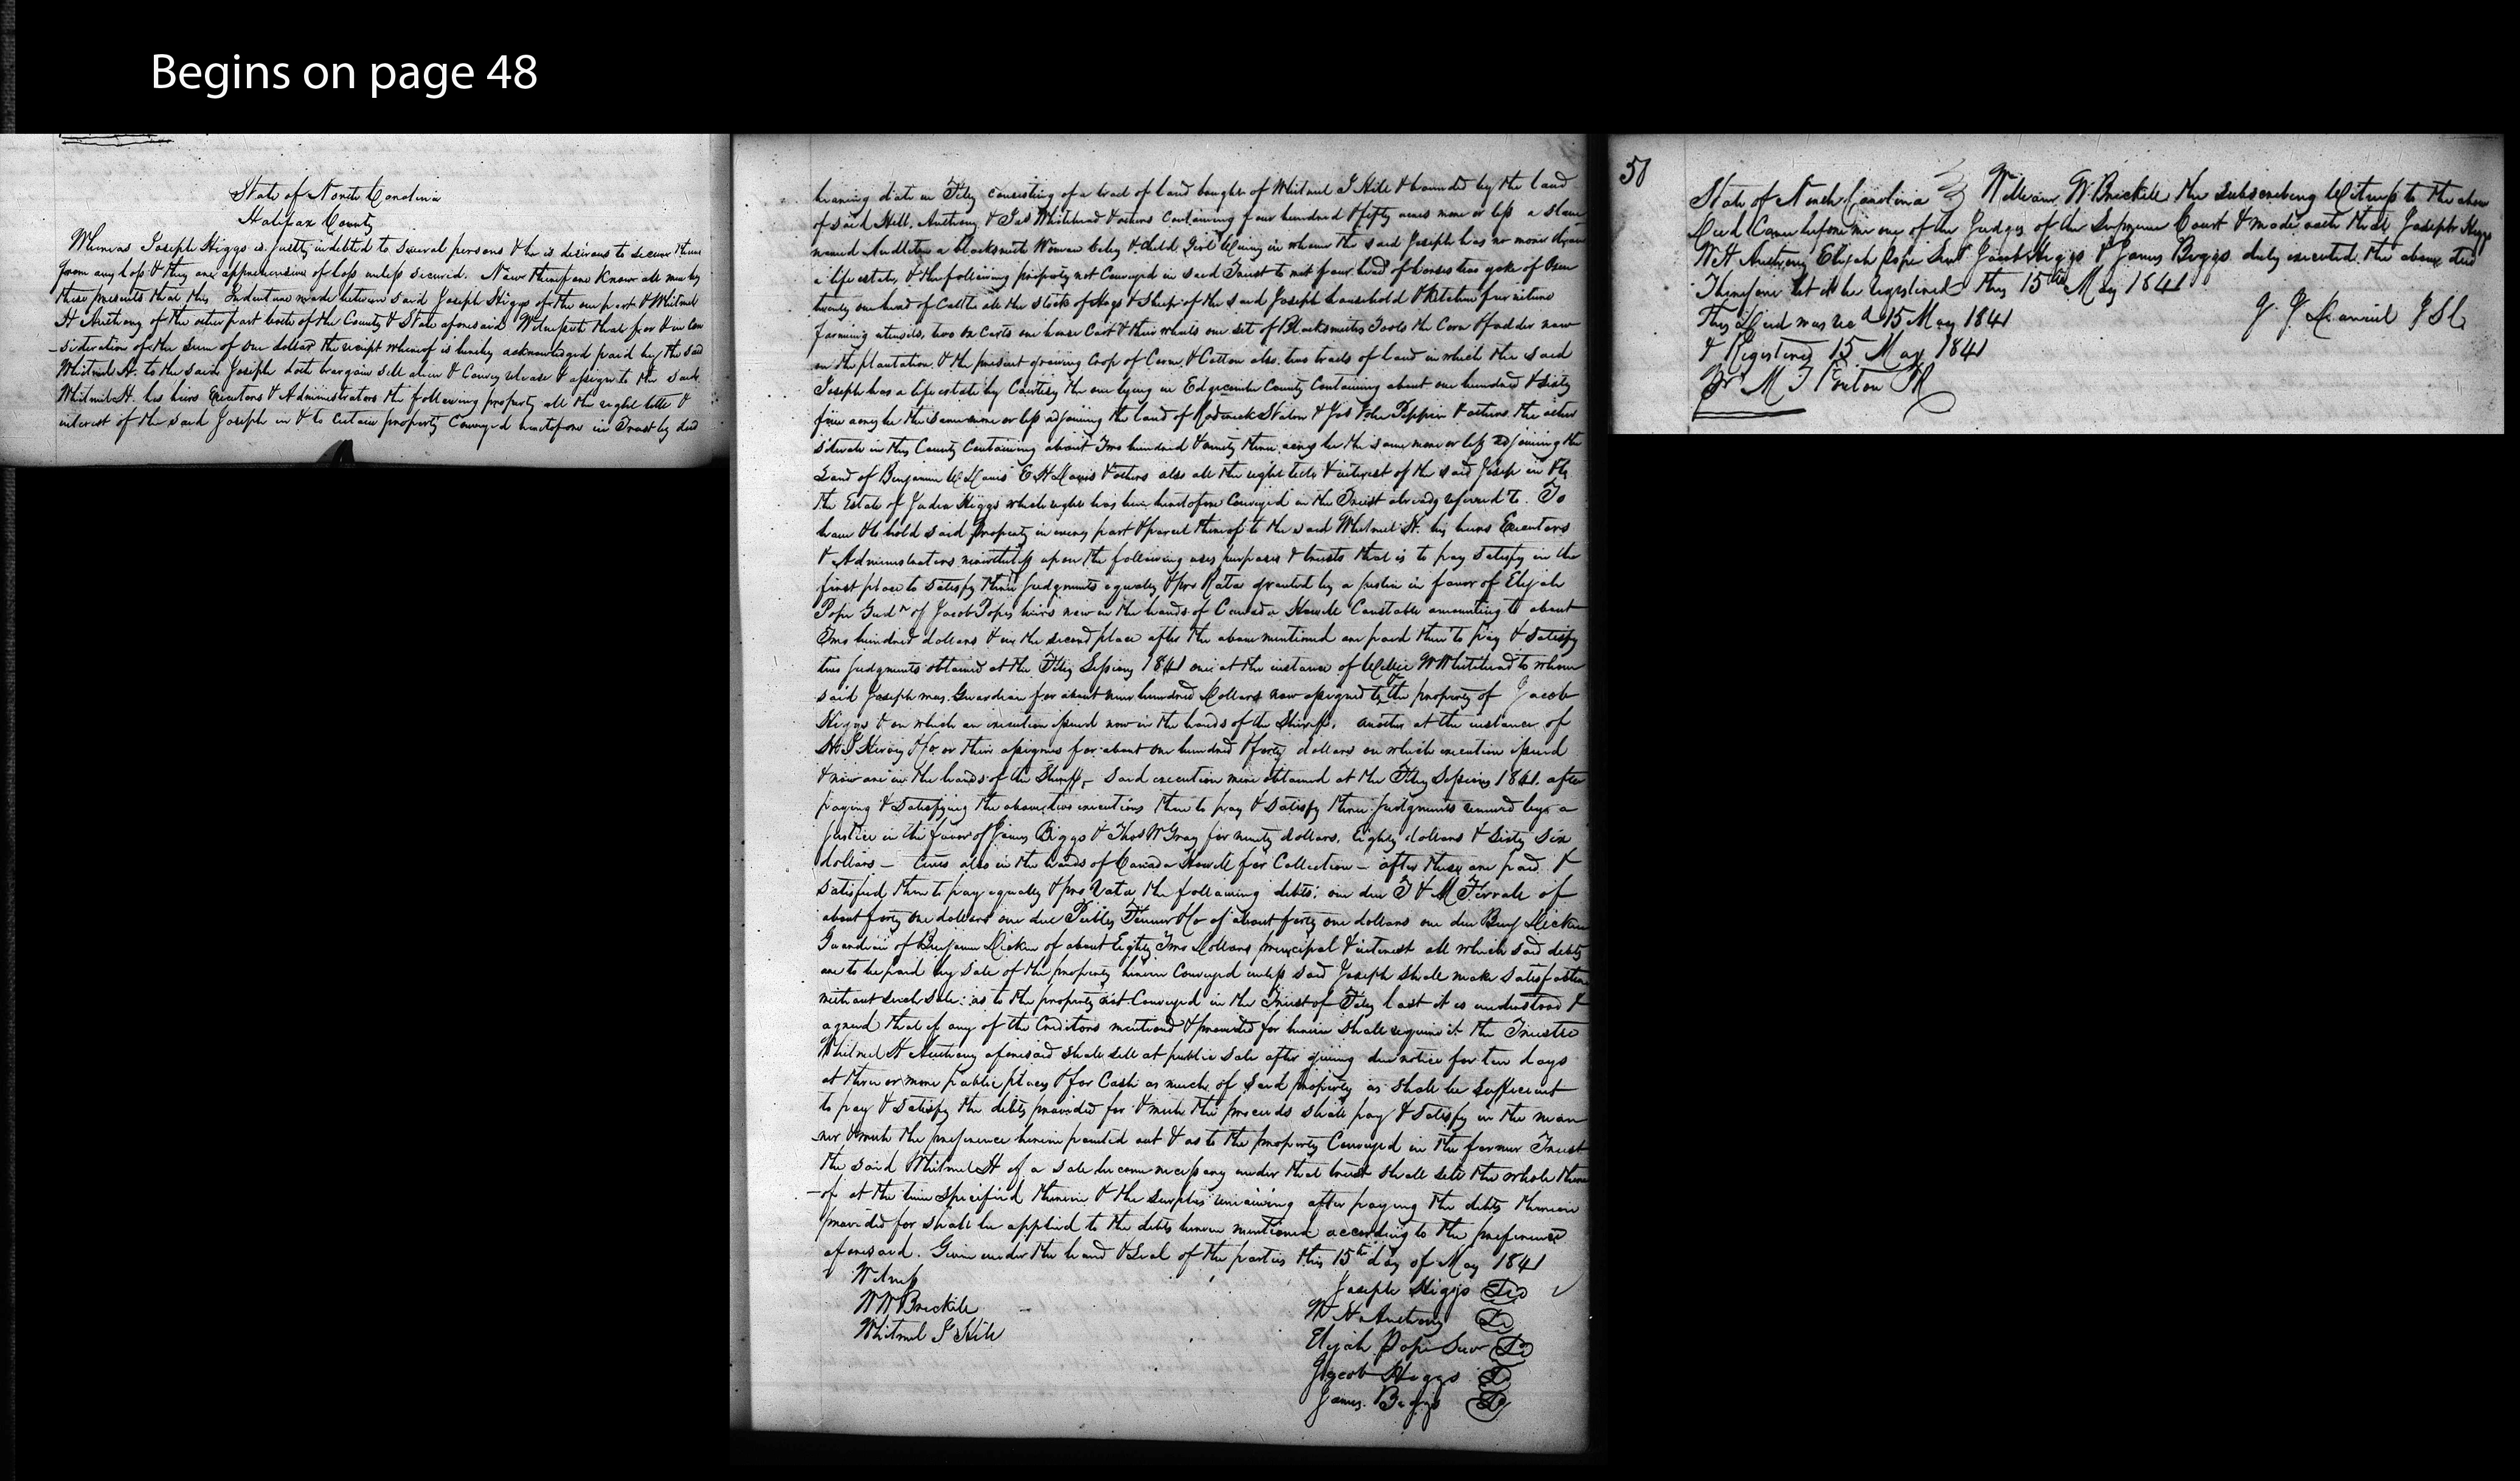 Begins on page 48
State of North Carolina
Halifax County
Whereas Joseph Higgs is justly indebted to several persons & he is desirous to secure them
from any loss & they are apprehensive of loss unless secured. Now therefore Know all men by
these presents that this Indenture made between said Joseph Higgs of the one part & Whitmel
H Anthony of the other part both of the County & State aforesaid Witnesseth that for & in con
-sideration of the sum of one dollar the receipt whereof is hereby acknowledged paid by the said
Whitmel H. to the said Joseph doth bargain sell alien & Convey release & assign to the said
Whitmel H. his heirs Executors & Administrators the following property all the right title &
interest of the said Joseph in & to certain property Conveyed heretofore in Trust by deed
bearing date in Feby consisting of a tract of land bought of Whitmel J Hill & bounded by the land
of said Hill, Anthony & Jas Whitehead & others Containing four hundred & fifty acres more or less a slave
named a blacksmith Woman Celey & child Girl in whom the said Joseph has no more than
a life estate, & the following property not Conveyed in said Trust to wit four head of horses two yoke of Oxen
twenty one head of Cattle all the stock of Hogs & Sheep of the said Joseph household & Kitchen furniture
farming utensils, two Ox Carts one horse Cart & their wheels one set of Blacksmiths Tools the Corn & fodder now
on the plantation & the present growing Crop of Corn & Cotton also two tracts of land in which the said
Joseph has a life estate by Courtesy the one lying in Edgecombe County Containing about one hundred & sixty
five acres be the same more or less adjoining the land of Roderick Staton & Jos John Pippin & others the other
situate in this County Containing about Two hundred & ninety three acres be the same more or less adjoining the
Land of Benjamin W Davis E H Davis & others also all the right title & interest of the said Joseph in &
the Estate of Higgs which right has been heretofore Conveyed in the Trust already referred to. To
have & to hold said property in every part & parcel thereof to the said Whitmel H. his heirs Executors
& Administrators nevertheless upon the following uses purposes & trusts that is to pay satisfy in the
first place to satisfy three judgments equally & pro Rata granted by a justice in favor of Elijah
Pope Gudn of Jacob Popes heirs now in the hands of Canada Howell Constable amounting to about
Two hundred dollars & in the second place after the above mentioned are paid then to pay & satisfy
two judgments obtained at the Feby Sessions 1841 one at the instance of W Whitehead to whom
said Joseph was Guardian for about nine hundred Dollars now assigned to & the property of Jacob
Higgs & on which an execution issued now in the hands of the Sheriff, another at the instance of
Hervey & Co or their assignees for about one hundred & forty dollars on which execution issued
& now are in the hands of the Sheriff, said execution were obtained at the Feby Sessions 1841. after
paying & satisfying the above two executions then to pay & satisfy three judgments rendered by a
Justice in the favor of James Biggs & Thos W Gray for ninety dollars, Eighty dollars & Sixty Six
dollars — also in the hands of Canada Howell for Collection — after these are paid &
satisfied then to pay equally & pro Rata the following debts: one due T & M Ferrall of
about forty one dollars one due Peebles & Co of about forty one dollars one due Benj Dicken
Guardian of Benjamin Dicken of about Eighty Two Dollars principal & interest all which said debts
are to be paid by sale of the property herein Conveyed unless said Joseph shall make satisfaction
without such sale: as to the property not Conveyed in the Trust of Feby last it is understood &
agreed that if any of the Creditors mentioned & provided for herein shall require it the Trustee
Whitmel H Anthony aforesaid shall sell at public sale after giving due notice for ten days
at three or more public places & for Cash as much of said property as shall be sufficient
to pay & satisfy the debts provided for & with the proceeds shall pay & satisfy in the man
-ner & with the preference herein pointed out & as to the property Conveyed in the former Trust
the said Whitmel H if a sale become necessary under that trust shall sell the whole there
-of at the time specified therein & the surplus remaining after paying the debts therein
provided for shall be applied to the debts herein mentioned according to the preference
aforesaid. Given under the hand & Seal of the parties this 15th day of May 1841
Witness
W W Brickell
Whitmel J Hill
Joseph Higgs
W H Anthony
Elijah Pope Senr
Jacob Higgs
James Biggs
50
State of North Carolina William W. Brickell the subscribing Witness to the above
Deed Came before me one of the Judges of the Supreme Court & made oath that Joseph Higgs
W H Anthony Elijah Pope Senr Jacob Higgs & James Biggs duly executed the above deed
Therefore let it be registered this 15th May 1841
J. J. Daniel J S C
This Deed was recd 15 May 1841
& Registered 15 May 1841